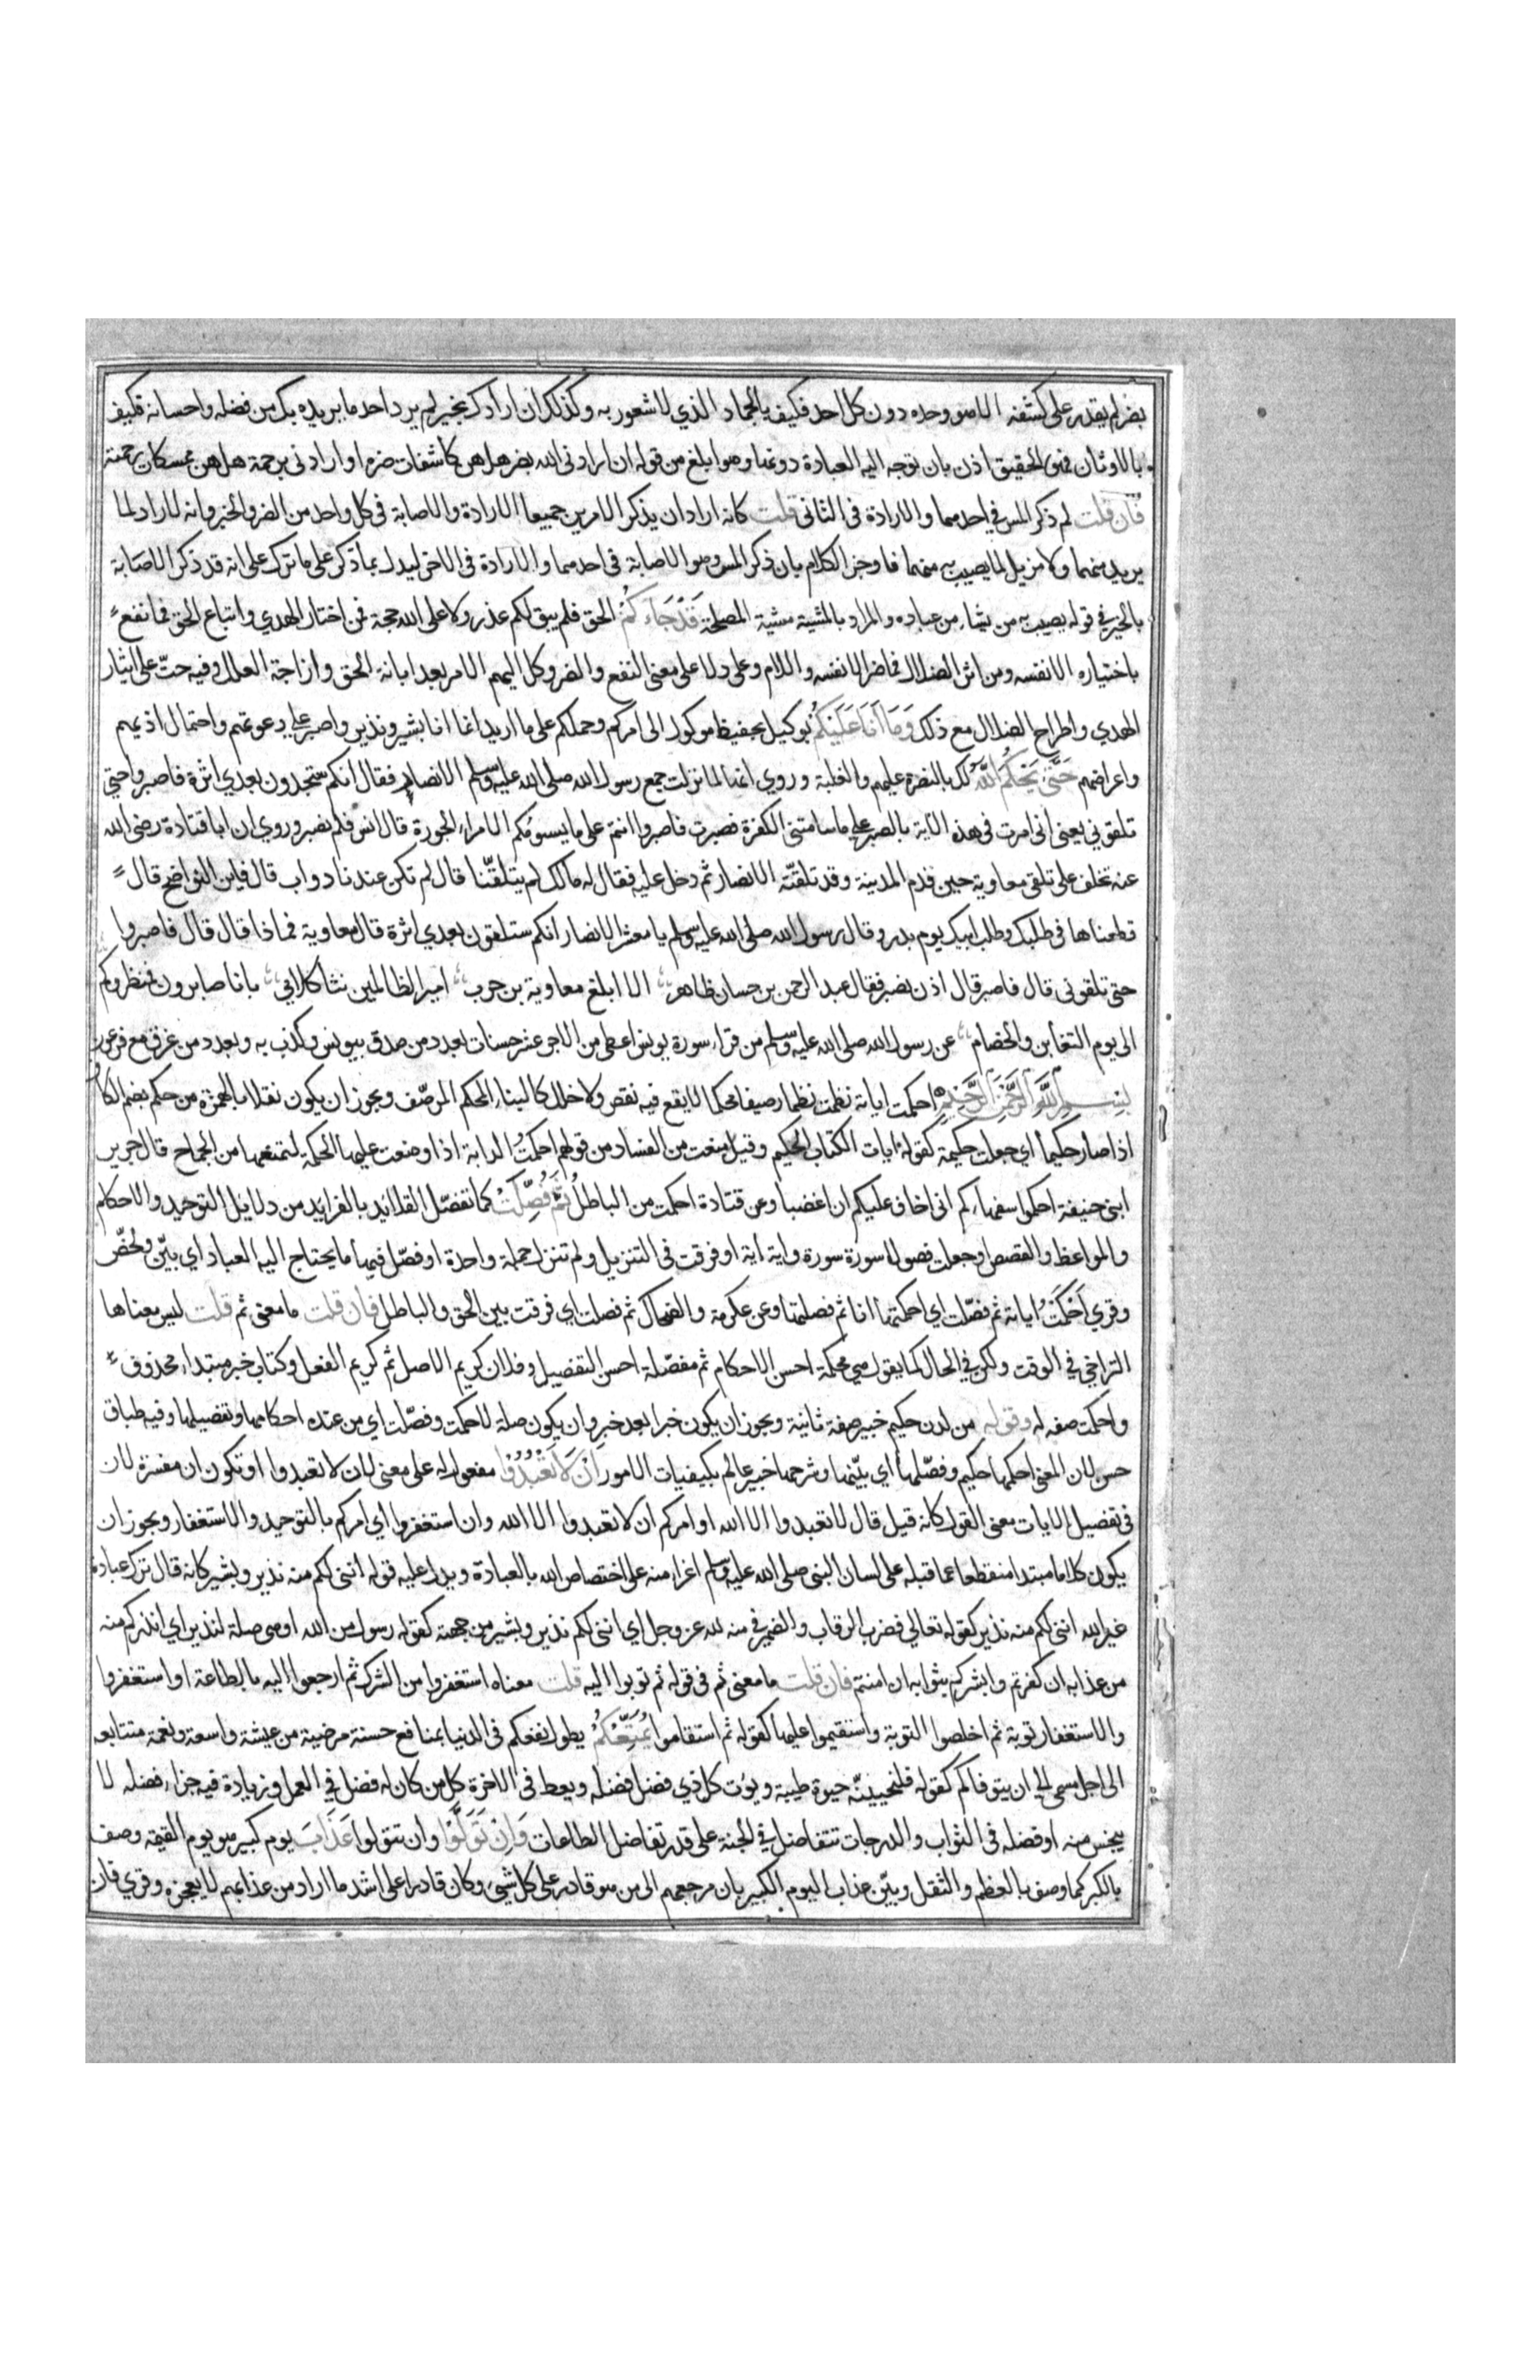 بضر لم يقدر على كشفه الا هو وحده دون كل احد فكيف بالجماد الذي لا شعور به وكذلك ان ارادك بخير لم يرد احد ما يريده بك من فضله واحسانه فكيف
بالاوثان فهو الحقيق اذن بان توجه اليه العبادة دونها وهو ابلغ من قوله ان ارادني الله بضر هل هن كاشفات ضره او ارادني برحمة هل هن ممسكات رحمته
فان قلت لم ذكر المس في احدهما والارادة في الثاني قلت كانه اراد ان يذكر الامرين جميعا الارادة والاصابة في كل واحد من الضر والخير وانه لا راد لما
يريد منهما ولا مزيل لما يصيب به منهما فاوجز الكلام بان ذكر المس وهو الاصابة في احدهما والارادة في الاخر ليدل بما ذكر على ما ترك على انه قد ذكر الاصابة
بالخير في قوله يصيب به من يشاء من عباده والمراد بالمشية مشية المصلحة قَدْ جَاءَكُمُ الحق فلم يبق لكم عذر ولا على الله حجة فمن اختار الهدي واتباع الحق فما نفع
باختياره الا نفسه ومن اثر الضلال فما ضر الا نفسه واللام وعلى دلا على معنى النفع والضر وكل اليهم الامر بعد ابانة الحق وازاحة العلل وفيه حثّ على ايثار
الهدي واطراح الضلال مع ذلك وَمَا أَنَا عَلَيْكُمْ بوكيل بحفيظ موكول الى امركم وحملكم على ما اريد انما انا بشير ونذير واصبر على دعوتهم واحتمال اذيهم
واعراضهم حَتَّى يَحْكُمَ اللَّهُ لك بالنصرة عليهم والغلبة وروي انها لما نزلت جمع رسول الله صلى الله عليه وسلم الانصار فقال انكم ستجدون بعدي اثرة فاصبروا حتي
تلقوني يعني اني امرت في هذه الآية بالصبر على ما سامتني الكفرة فصبرت فاصبروا انتم على ما يسومكم الامراء الجورة قال انس فلم نصبر وروي ان ابا قتادة رضى الله
عنه تخلف على تلقى معاوية حين قدم المدينة وقد تلقّته الانصار ثم دخل عليه فقال له مالك لم يتلقّنا قال لم تكن عندنا دواب قال فاين النواضح قال
قطعناها في طلبك وطلب ابيك يوم بدر وقال رسول الله صلى الله عليه وسلم يا معشر الانصار انكم ستلقون بعدي اثرة قال معاوية فماذا قال قال فاصبروا
حتى تلقوني قال فاصبر قال اذن نصبر فقال عبد الرحمن بن حسان الا ابلغ معاوية بن حرب امير الظالمين نثا كلامي بانا صابرون فمنظروكم
الى يوم التغابن والخصام عن رسول الله صلى الله عليه وسلم من قراء سورة يونس اعطى من الاجر عشر حسنات بعدد من صدق بيونس وكذب به وبعدد من غرق مع فرعون
بِسْمِ اللَّهِ الرَّحْمَنِ الرَّحِيمِ احكمت اياته نظمت نظما رصيفا محكما لا يقع فيه نقص ولا خلل كالبناء المحكم المرصّف ويجوز ان يكون نقلا بالهمزة من حكم بضم الكاف
اذا صار حكيما اي جعلت حكيمة كقوله ايات الكتاب الحكيم وقيل منعت من الفساد من قولهم احكمتُ الدابة اذا وضعت عليها الحكمة لتمنعها من الجماح قال جرير
ابنى حنيفة احكموا سفهاءكم اني اخاف عليكم ان اغضبا وعن قتادة احكمت من الباطل ثُمَّ فُصِّلَتْ كما تفصّل القلائد بالفرايد من دلايل التوحيد والاحكام
والمواعظ والقصص او جعلت فصولا سورة سورة واية اية او فرقت في التنزيل ولم تنزل جملة واحدة او فصّل فيها ما يحتاج اليه العباد اي بيّن ولُخّص
وقري أَحْكَمْتُ اياته ثم فصّلت اي احكمتها انا ثم فصلتها وعن عكرمة والضحاك ثم فصلت اي فرقت بين الحق والباطل فان قلت ما معنى ثم قلت ليس معناها
التراخي في الوقت ولكن في الحال كما يقول هي محكمة احسن الاحكام ثم مفصّلة احسن التفصيل وفلان كريم الاصل ثم كريم الفعل وكتاب خبر مبتداء محذوف
واحكمت صفه له وقوله من لدن حكيم خبير صفة ثانية ويجوز ان يكون خبرا بعد خبر وان يكون صلة لاحكمت وفصّلت اي من عنده احكامها وتفصيلها وفيه طباق
حسن لان المعنى احكمها حكيم وفصّلها اي بيّنها وشرحها خبير عالم بكيفيات الامور أَنْ لَا تَعْبُدُوا مفعول له على معنى لان لا تعبدوا او تكون ان مفسرة لان
في تفصيل الايات معنى القول كانه قيل قال لا تعبدوا الا الله او امركم ان لا تعبدوا الا الله وان استغفروا اي امركم بالتوحيد والاستغفار ويجوز ان
يكون كلاما مبتدا منقطعا عما قبله على لسان النبى صلى الله عليه وسلم اغراء منه على اختصاص الله بالعبادة ويدل عليه قوله انني لكم منه نذير وبشير كانه قال ترك عبادة
غير الله انني لكم منه نذير كقوله تعالي فضرب الرقاب والضمير في منه لله عز وجل اي انني لكم نذير وبشير من جهته كقوله رسول من الله او هى صلة لنذير اي انذركم منه
من عذابه ان كفرتم وابشركم بثوابه ان امنتم فان قلت ما معنى ثم في قوله ثم توبوا اليه قلت معناه استغفروا من الشرك ثم ارجعوا اليه بالطاعة او استغفروا
والاستغفار توبة ثم اخلصوا التوبة واستقيموا عليها كقوله ثم استقاموا يُمَتِّعْكُمْ يطول نفعكم في الدنيا بمنافع حسنة مرضية من عيشة واسعة ونعمة متتابعه
الى اجل مسمى الي ان يتوفاكم كقوله فلنحيينّه حيوة طيبة ويؤت كل ذي فضل فضله ويعط في الاخرة كل من كان له فضل في العمل وزيادة فيه جزاء فضله لا
يبخس منه او فضله في الثواب والدرجات تتفاضل في الجنة على قدر تفاضل الطاعات وَإِنْ تَوَلَّوْا وان تتولوا عَذَابَ يوم كبير هو يوم القيمة وصف
بالكبر كما وصف بالعظم والثقل وبيّن عذاب اليوم الكبير بان مرجعهم الى من هو قادر على كل شيء وكان قادرا على اشد ما اراد من عذابهم لا يعجزه وقري فان